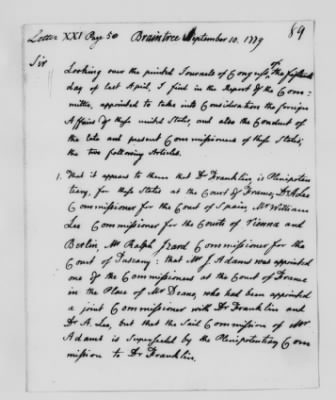 Letter XXI Page 50 Braintree September 10. 1779 89
Sir
Looking over the printed Journals of Congress of the fifteenth
day of last April, I find in the Report of the Com=
mittee, appointed to take into Consideration the foreign
Affairs of these united States, and also the Conduct of
the late and present Commissioners of these States,
the two following Articles.
1. That it appears to them that Dr Franklin, is Plenipoten
tiary, for these States at the Court of France, Dr A. Lee
Commissioner for the Court of Spain, Mr William
Lee Commissioner for the Courts of Vienna and
Berlin, Mr Ralph Izard Commissioner for the
Court of Tuscany: that Mr J. Adams was appointed
one of the Commissioners at the Court of France
in the Place of Mr Deane, who had been appointed
a joint Commissioner with Dr Franklin and
Dr A. Lee, but that the Said Commission of Mr
Adams is Superseded by the Plenipotentiary Com
mission to Dr Franklin.